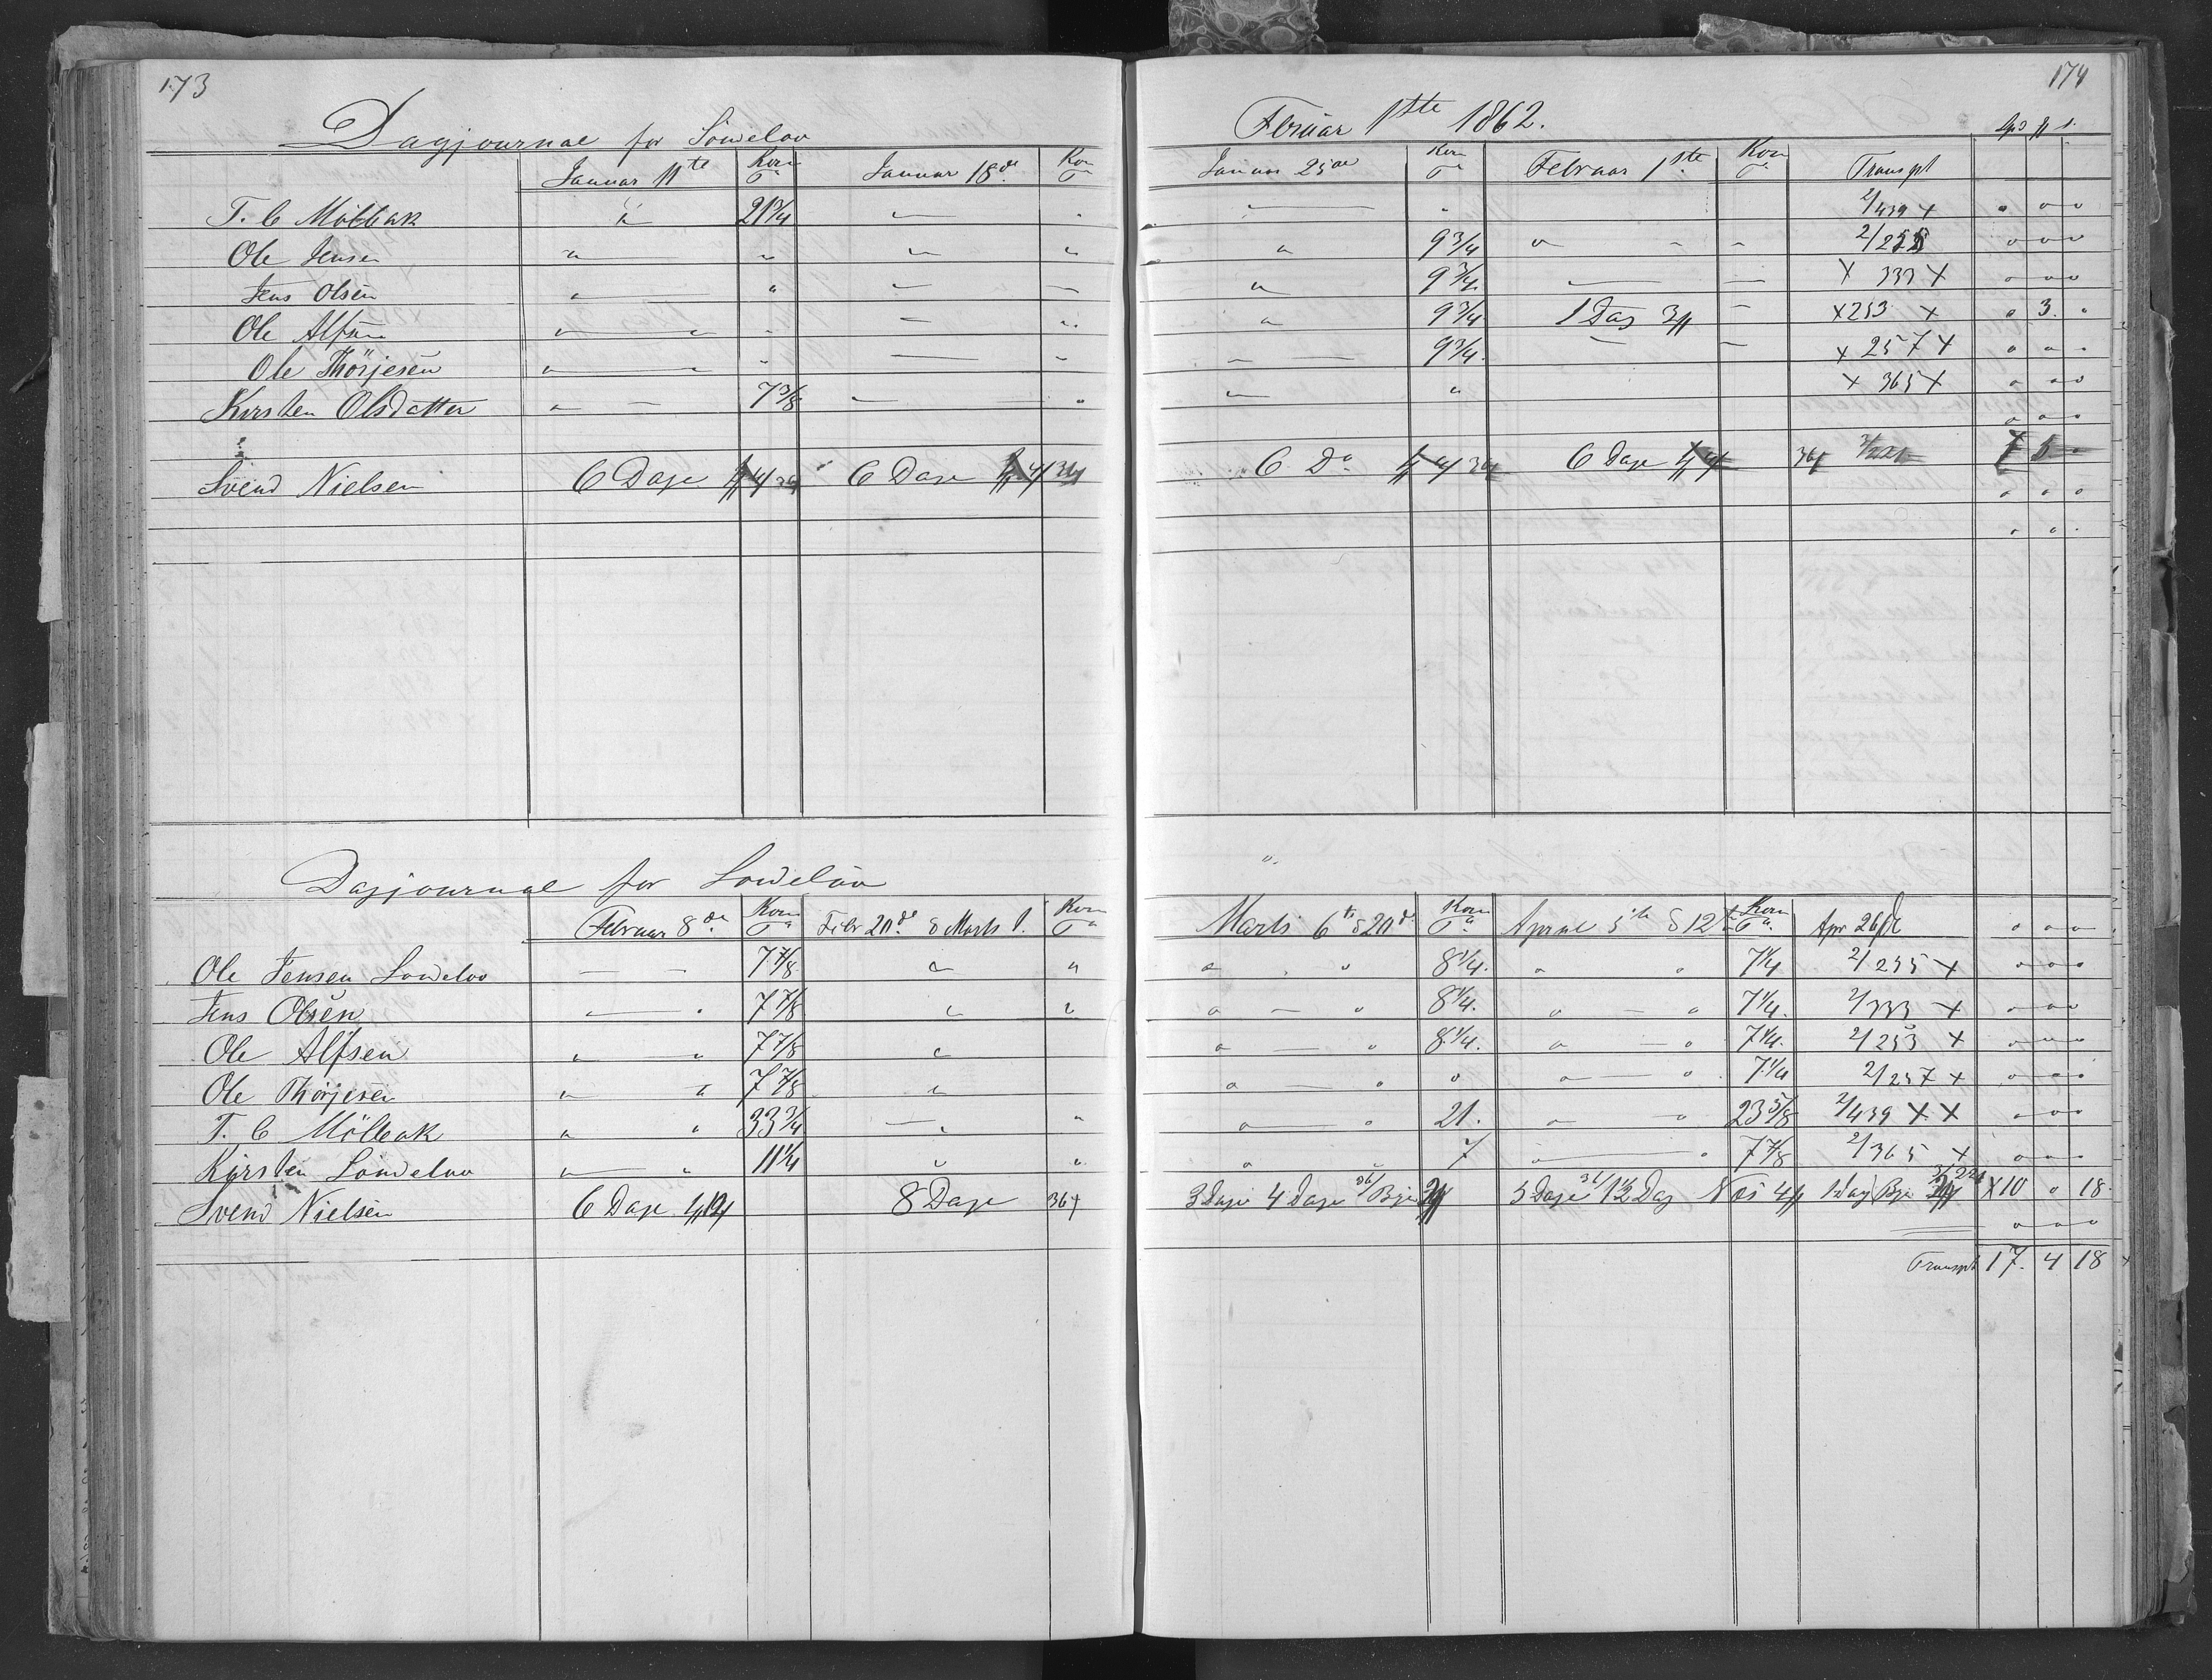 173
Dagjournal for Löweloo
Januar 11te Korn Ta Januar 18de Korn Ta
T. C Mölbak " 21 3/4
Ole Jensen
Jens Olsen
Ole Alfsen
Ole Thörjesen
Kirsten Olsdatter 7 3/8
Svend Nielsen 6 Dage 6 Dage
Dagjournal for Loweloo
Februar 8de Korn Ta Febr 20de & Marts 1. Korn Ta
Ole Jensen Loweloo 7 7/8
Jens Olsen 7 7/8
Ole Alfsen 7 7/8
Ole Thörjesen 7 7/8
T. C Mölbak 33 3/4
Kirsten Löweloo 11 1/4
Svend Nielsen 6 Dage 8 Dage 36
174
Februar 1ste 1862.
Januar 25de Korn Ta Februar 1ste Korn Ta Transpt
2/439 x
9 3/4 2/255
9 3/4 x 333 x
9 3/4 1 Dag x 253 x 3
9 3/4 x 257 x
x 365 x
6 Do 6 Dage
Marts 6te & 20de Korn Ta Aprile 5te & 12te Korn Ta Apr 26de
8 1/4 7 1/4 2/255 x
8 1/4 7 1/4 2/333 x
8 1/4 7 1/4 2/253 x
7 1/4 2/257 x
21 23 5/8 2/439 x x
7 7 7/8 2/365 x
3 Dage 4 Dage 5 Dage 1 1/2 Dag 1 Dag x 10 " 18
Transpt 17. 4 18